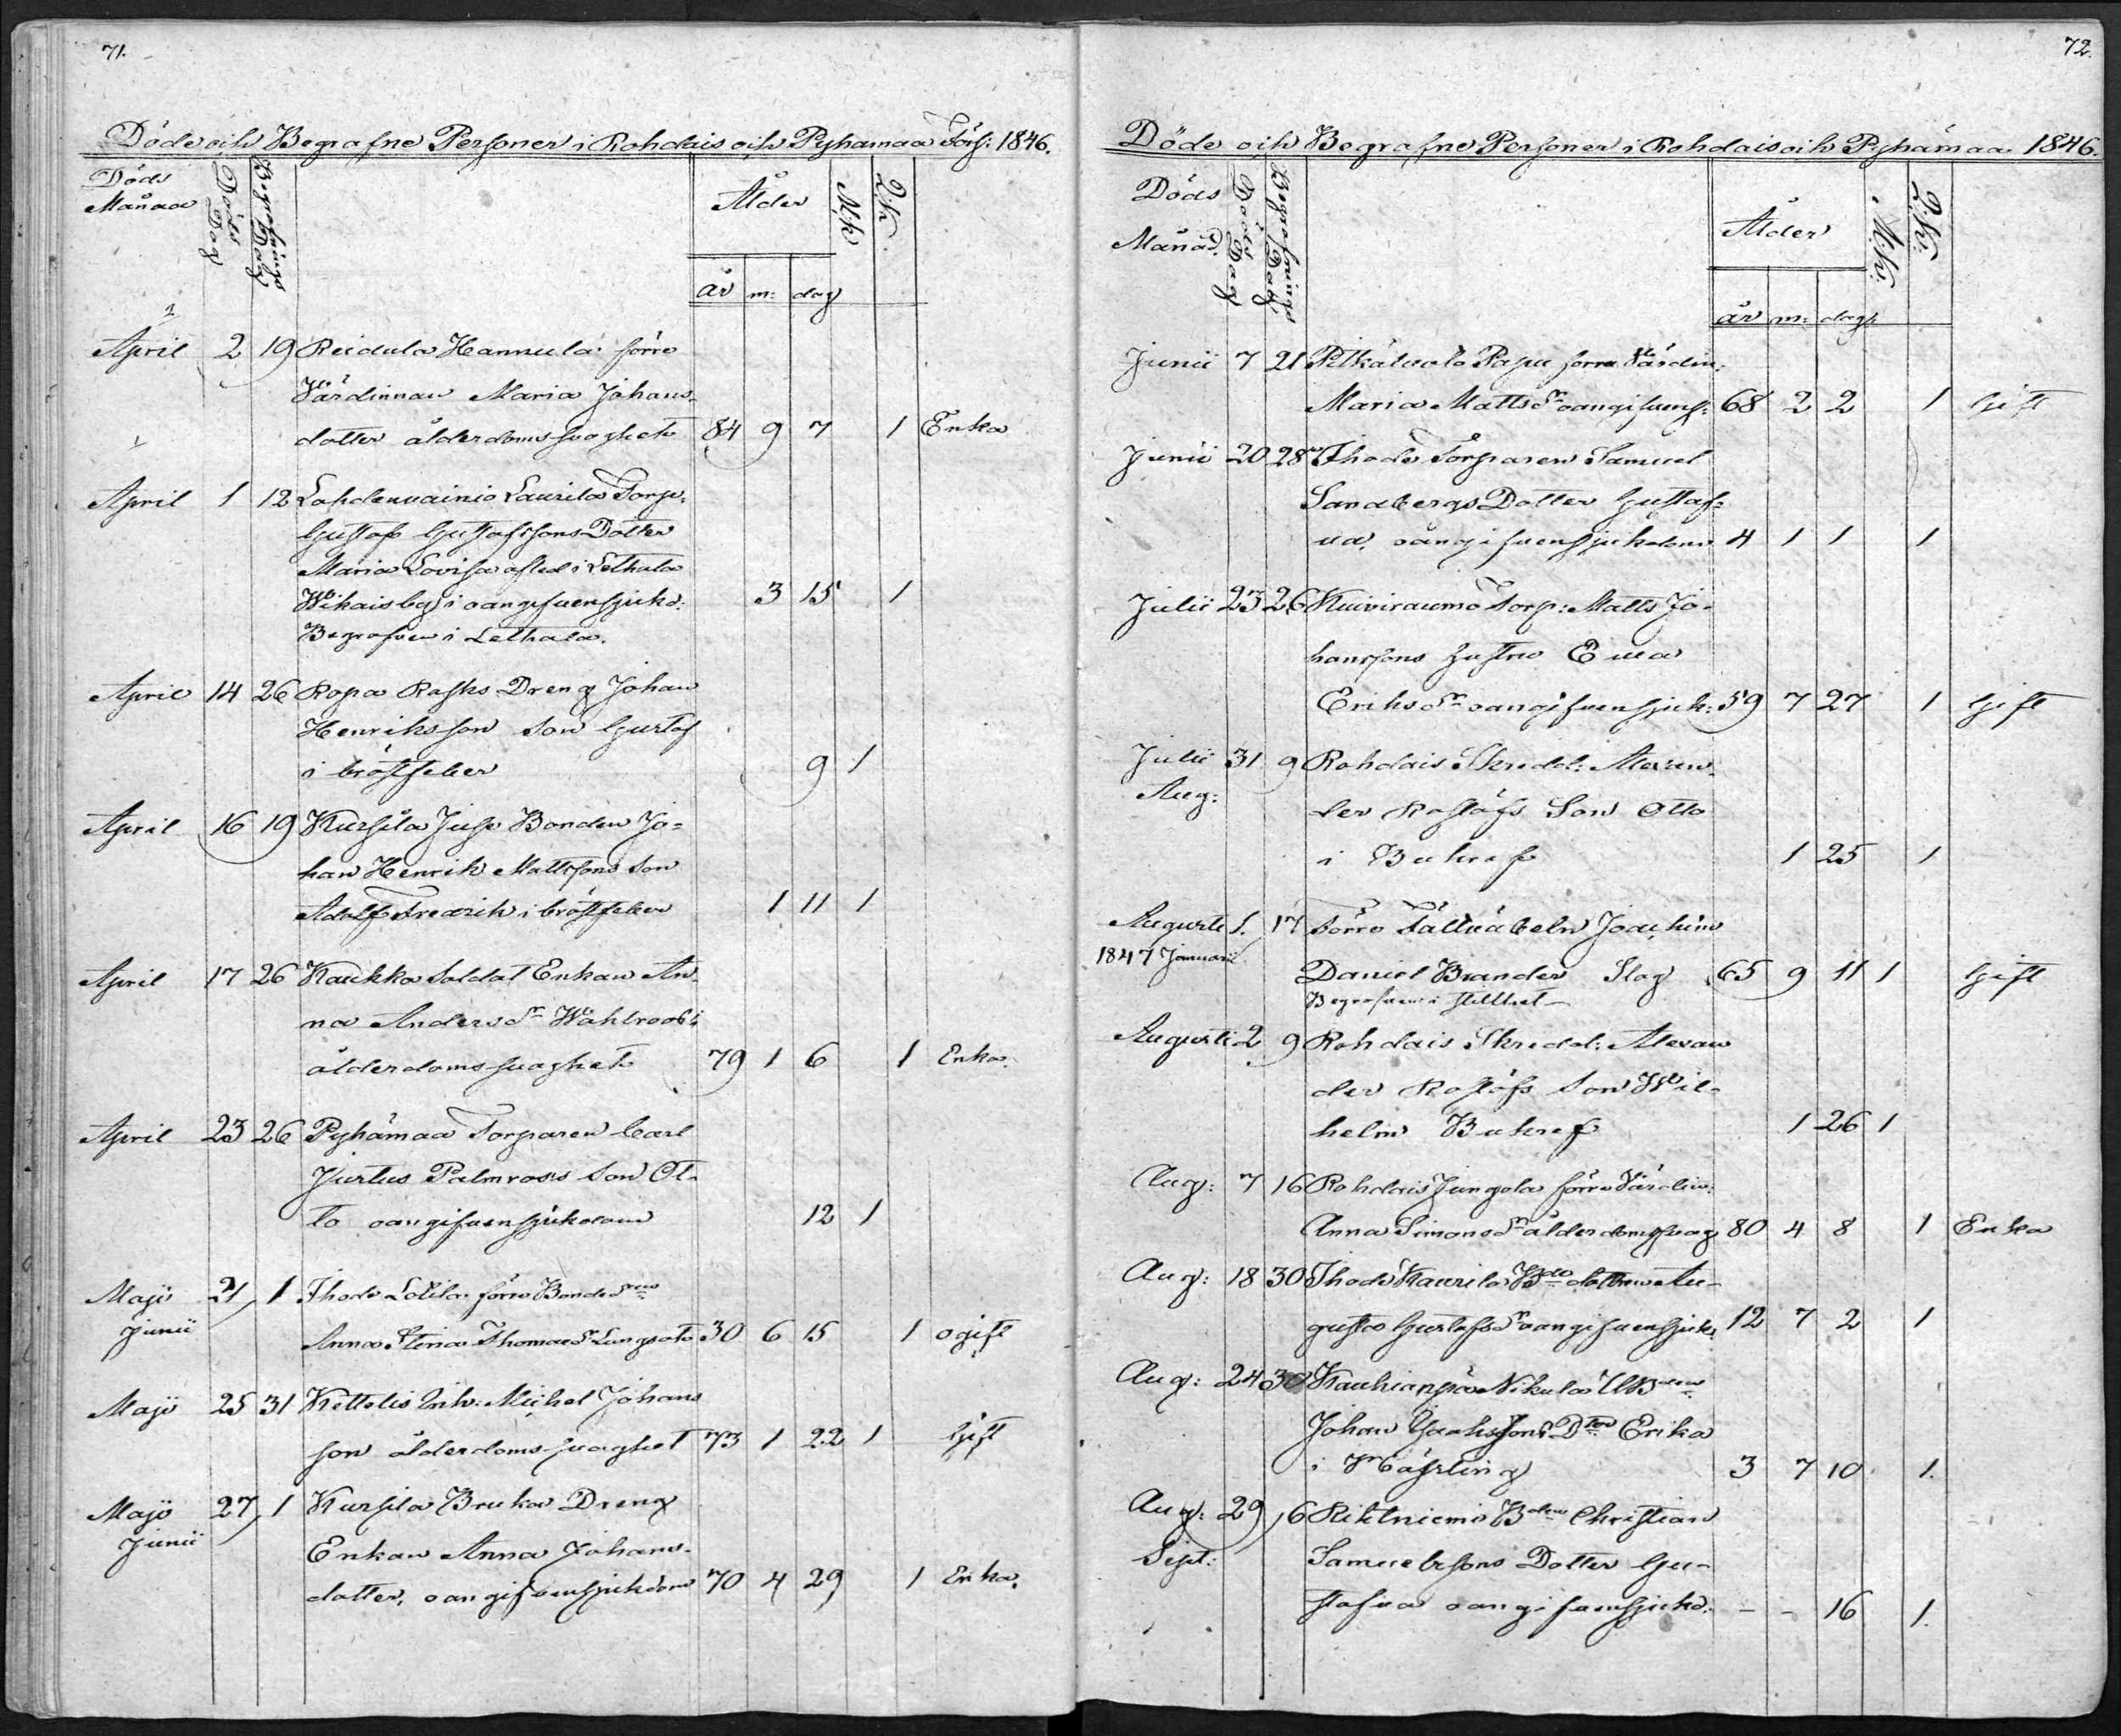 71.
Döde och Begrafne Personer i Rohdais och Pyhämaa Förs: 1846.
Döds Månad
Döds Dag
Begrafnings Dag
Ålder
år m: dag
M.k
Q.k
April 2 19 Reidula Hannula förre
Värdinnan Maria Johans-
dotter ålderdomssvaghet 84 9 7 1 Enka
April 1 12 Lahdenvainio Laurila Torp:
Gustaf Gustafssons Dotter
Maria Lovisa afled i Lethala
Wikais by i oangifven sjukd: 3 15 1
Begrafven i Lethala.
April 14 26 Ropa Rasks Dreng Johan
Henriksson Son Gustaf
i bröstfeber 9 1
April 16 19 Kursila Juse Bonden Jo-
han Henrik Mattssons Son
Adolf Fredrik i bröstfeber 1 11 1
April 17 26 Kaukka Soldat Enkan An-
na Anders Dr Wahlroos i
ålderdomssvaghet 79 1 6 1 Enka.
April 23 26 Pyhämaa Torparen Carl
Justus Palmroos's Son Ot-
to oangifven sjukdom 12 1
Majo 21 1 Ihode Lälila förre Bonde Drn
Junii Anna Stina Thomas Dr Lungsot 30 6 15 1 ogift
Majo 25 31 Kettelis Inh: Michel Johans
son ålderdomssvaghet 73 1 22 1 Gift
Majo 27 1 Kursila Bruka Dreng
Junii Enkan Anna Johans-
dotter, oangifven sjukdom 70 4 29 1 Enka.
72.
Döde och Begrafne Personer i Rohdais och Pyhämaa 1846.
Döds Månad.
Döds Dag
Begrafnings Dag
Ålder
år m: dag:
M.k:
Q.k:
Junii 7 21 Pitkäluoto Papu förra Värdin:
Maria Matts Dr oangifven s: 68 2 2 1 Gift
Junii 20 28 Ihode Torparen Samuel
Sandbergs Dotter Gustaf-
va, oangifven sjukdom 4 1 1 1
Julii 23 26 Kuiviraumo Torp: Matts Jo-
hanssons hustru Eva
Eriks Dr oangifven sjuk: 59 7 27 1 Gift
Julii 31 9 Rohdais Skredd: Alexan-
Aug: der Roslöfs Son Otto
i Bukref 1 25 1
Augusti 1. 17 Förre Fältväbeln Joachim
1847 Januarii Daniel Brander Slag 65 9 11 1 Gift
Begrafven i stillhet
Augusti 2 9 Rohdais Skredd: Alexan
der Roslöfs Son Wil-
helm Bukref 1 26 1
Aug: 7 16 Rohdais Jungola förre Värdin:
Anna Simons Dr ålderdomssvag 80 4 8 1 Enka
Aug: 18 30 Ihode Kaurila Bde dottren Au-
gusta Gustafs Dr oangifven sjuk: 12 7 2 1
Aug: 24 30 Kauhianpä Nikula UBden
Johan Isakssons Dter Erika
i Mässling 3 7 10 1.
Aug: 29 6 Rihtniemi Bden Christian
Sept: Samuelssons Dotter Gu-
stafva oangifven sjukd: - - 16 1.